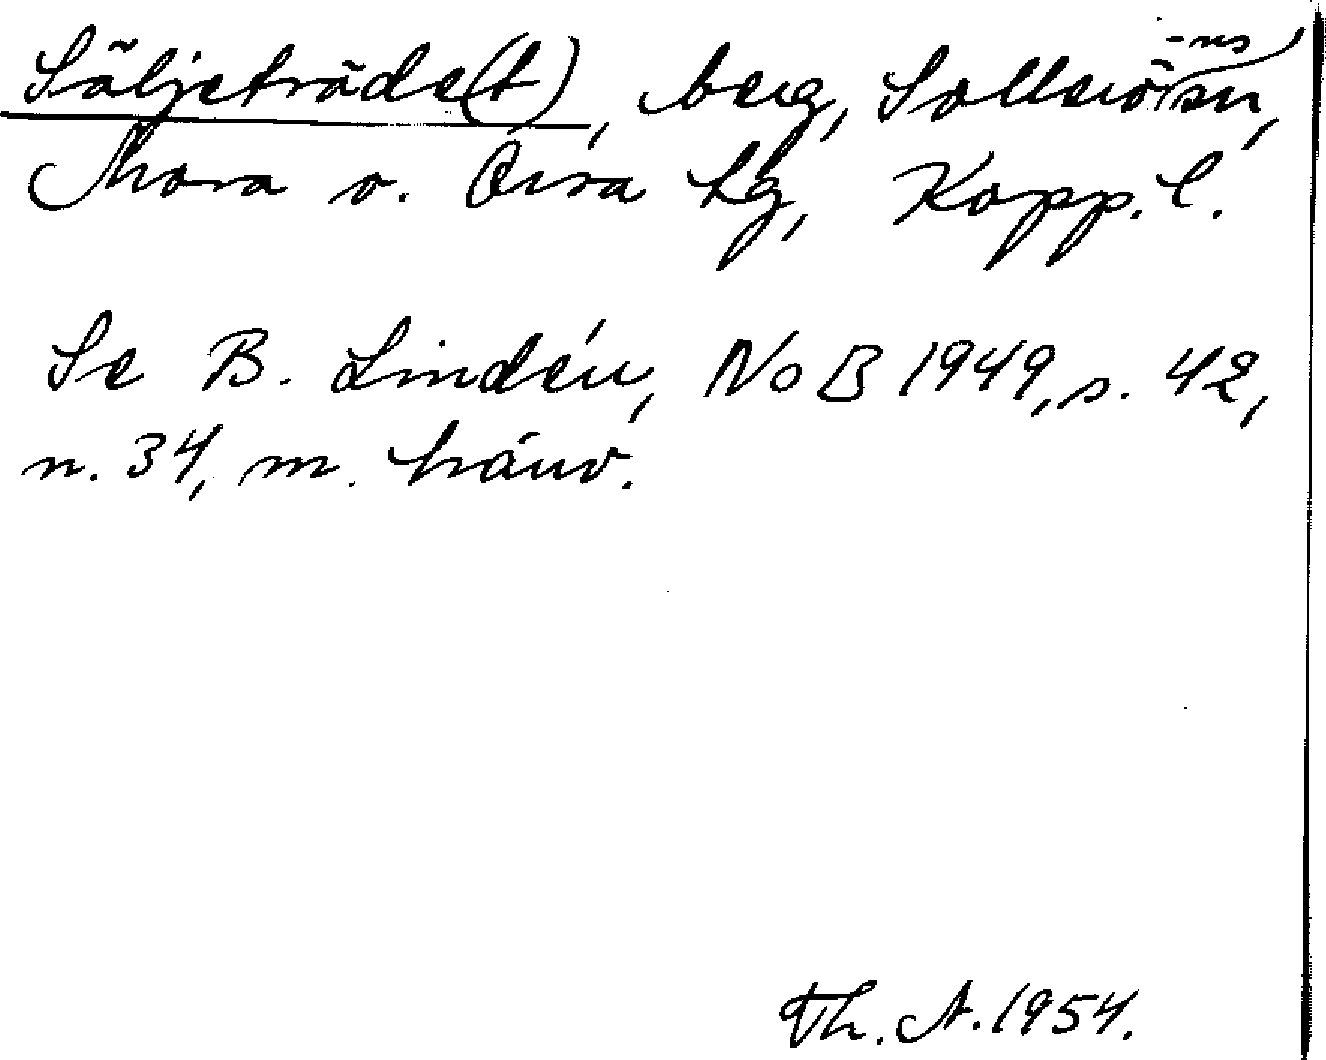 Säljeträde(t), berg, Sollerö(-ns) sn,
Mora o. Orsa tg, Kopp. l.
Se B. Lindén, NoB 1949, s. 42,
n. 34, m. hänv.
Th. A. 1954.